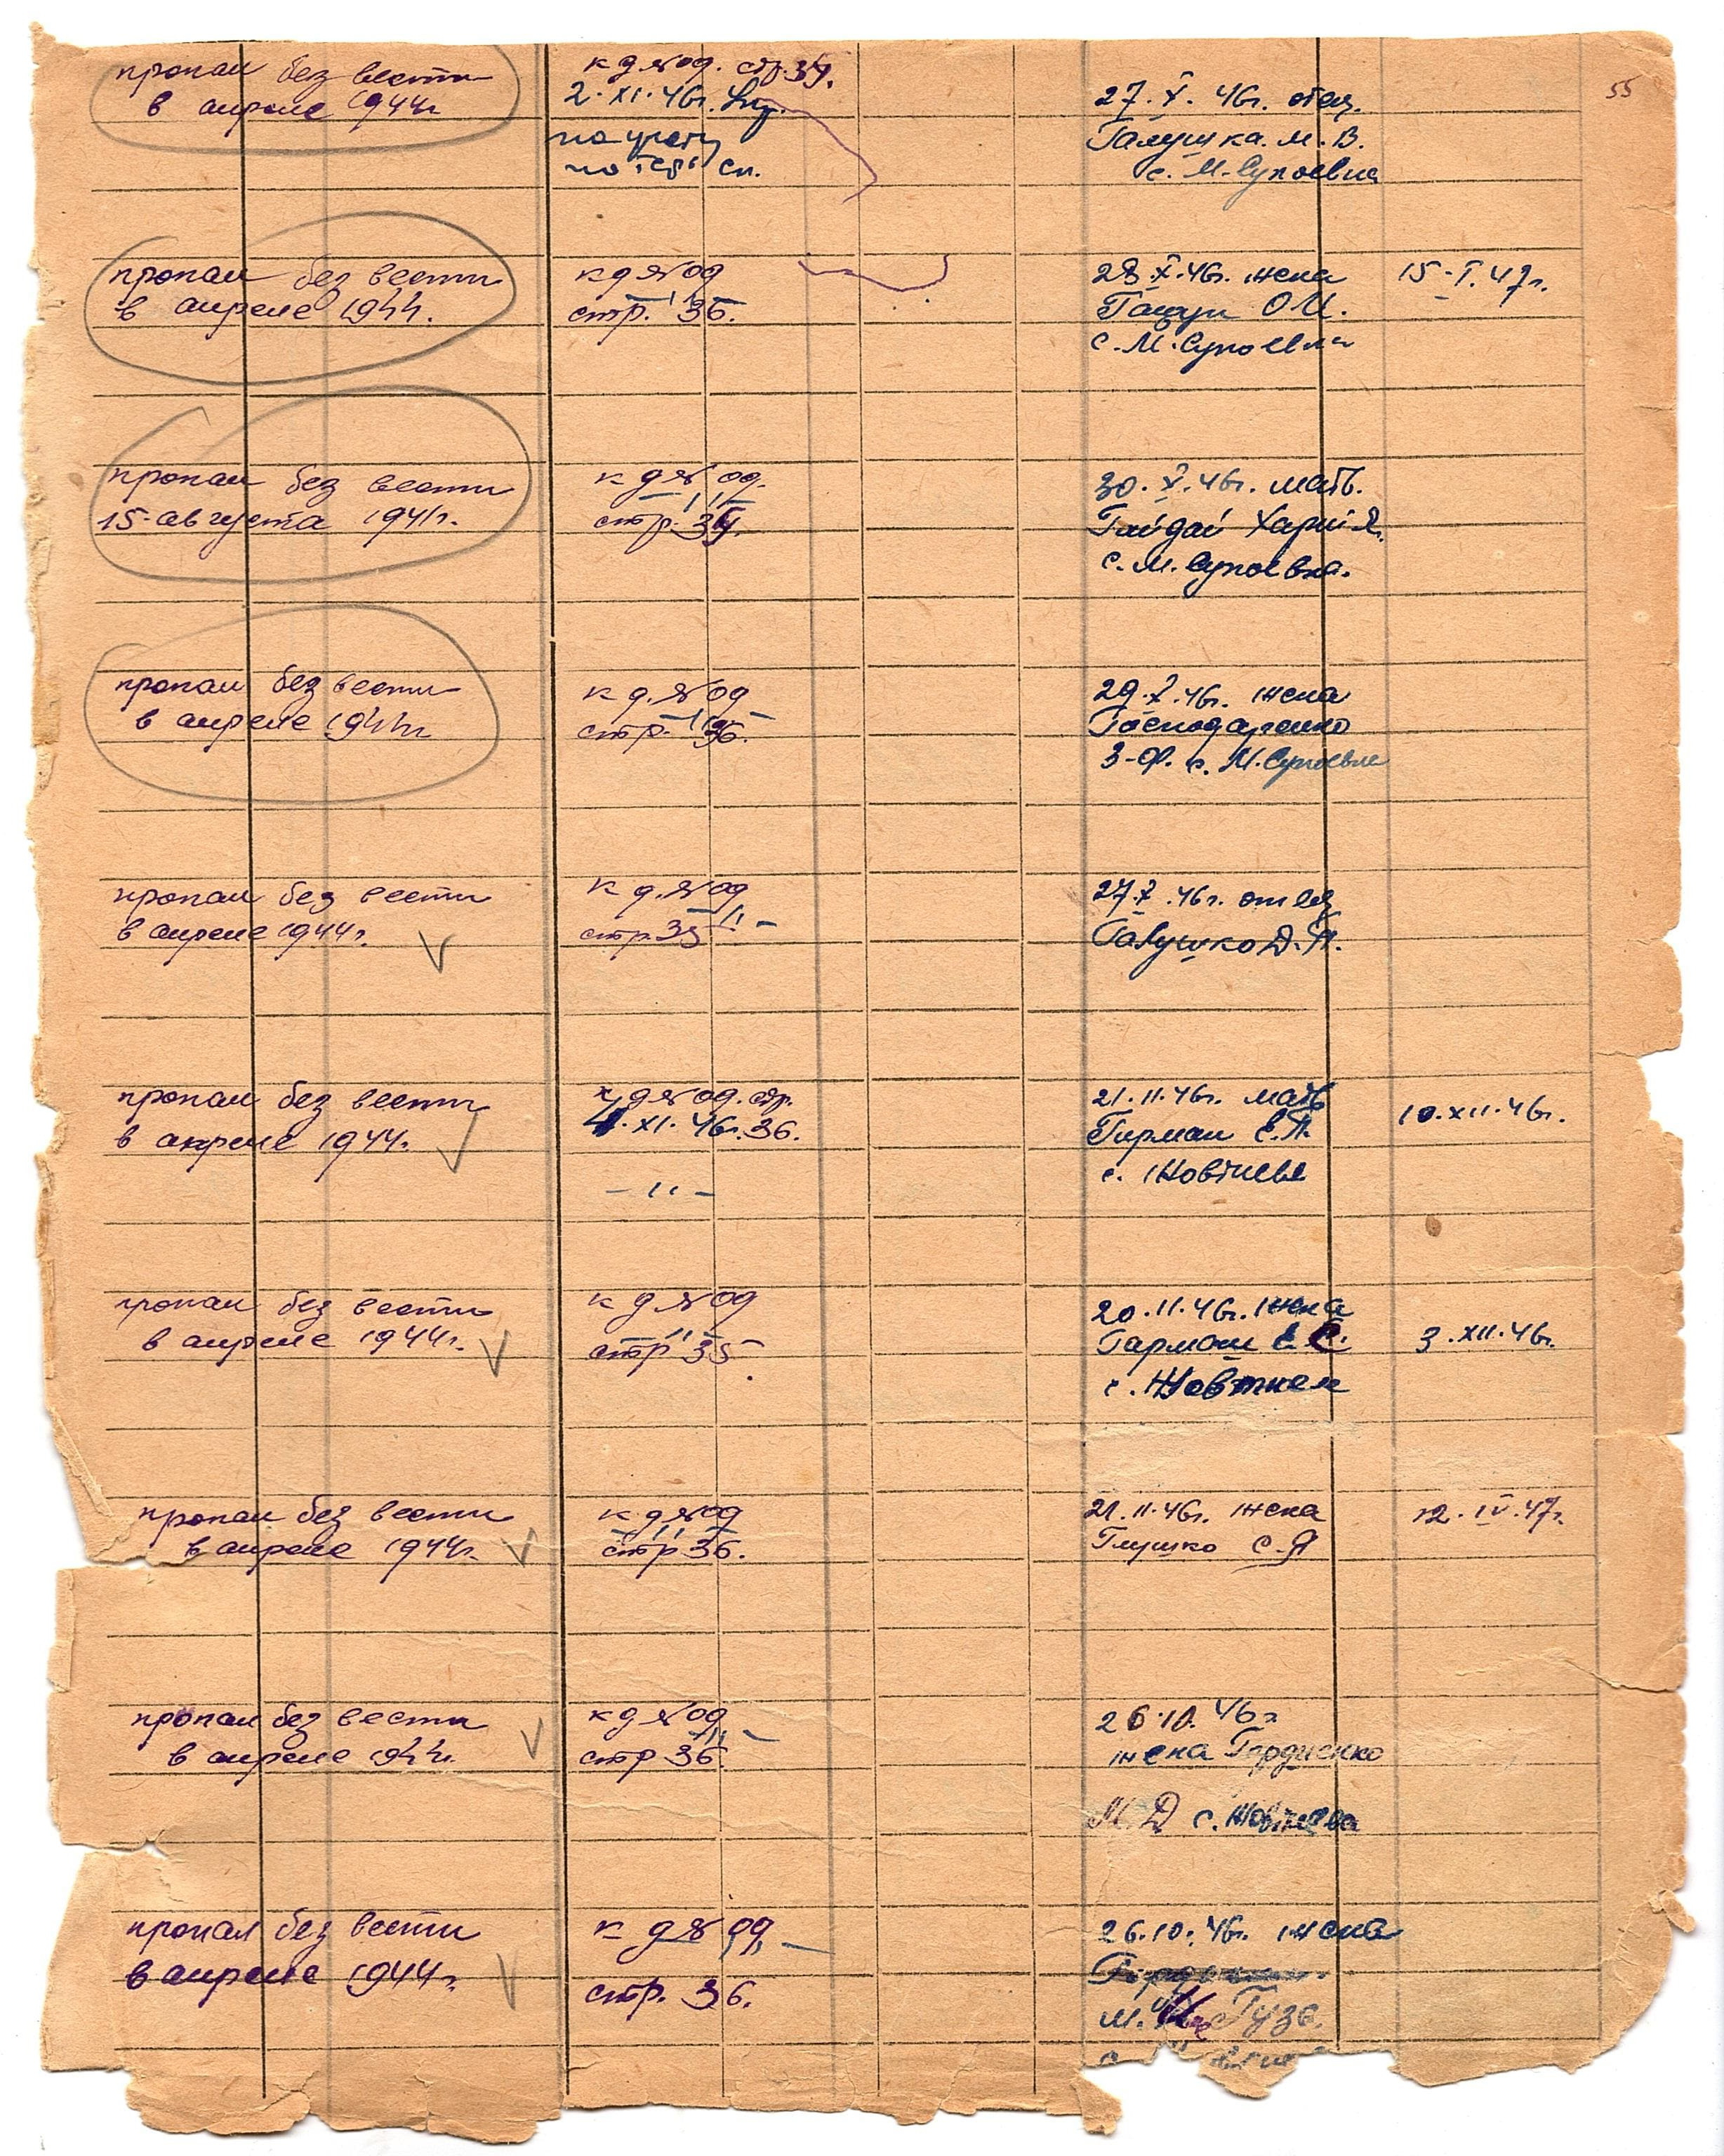 55
пропал без вести
в апреле 1944г
к д № 09. стр. 34.
2.XI.46г.
на учету
по сп.
27.X.46г. отец
Галушка. М.В.
с. М.-Супоевка
пропал без вести
в апреле 1944.
к д № 09
— " —
стр. 36.
28.X.46г. жена
О И.
с. М.Супоевка
15.I.47г.
пропал без вести
15-августа 1941г.
к д № 09.
— " —
стр. 34.
30.X.46г. мать.
Гайдай
с. М. Супоевка.
пропал без вести
в апреле 1944г
к д. № 09
— " —
стр. 36.
29.X.46г. жена
Господаренко
З-Ф. с. М.Супоевка
пропал без вести
в апреле 1944г.
к д. № 09
— " —
стр. 35
27.X.46г. отец
Галушко Д.П.
пропал без вести
в апреле 1944г.
к д № 09. стр.
4.XI.46г. 36.
— " —
21.11.46г. мать
Гирман Е.П.
с. Жовтневе
10.XII.46г.
пропал без вести
в апреле 1944г.
к д № 09
— " —
стр 35
20.11.46г. жена
Гармаш Е С.
с. Жовтнев
3.XII.46г.
пропал без вести
в апреле 1944г.
к д № 09
— " —
стр 36.
21.11.46г. жена
Глушко С.Я
12.IV.47г.
пропал без вести
в апреле 1944г.
к д № 09
— " —
стр 36.
26.10.46г
жена Гордиенко
М.Д с. Жовтнева
пропал без вести
в апреле 1944г.
к д № 09
— " —
стр. 36.
26.10.46г. жена
М. Гузь.
с.